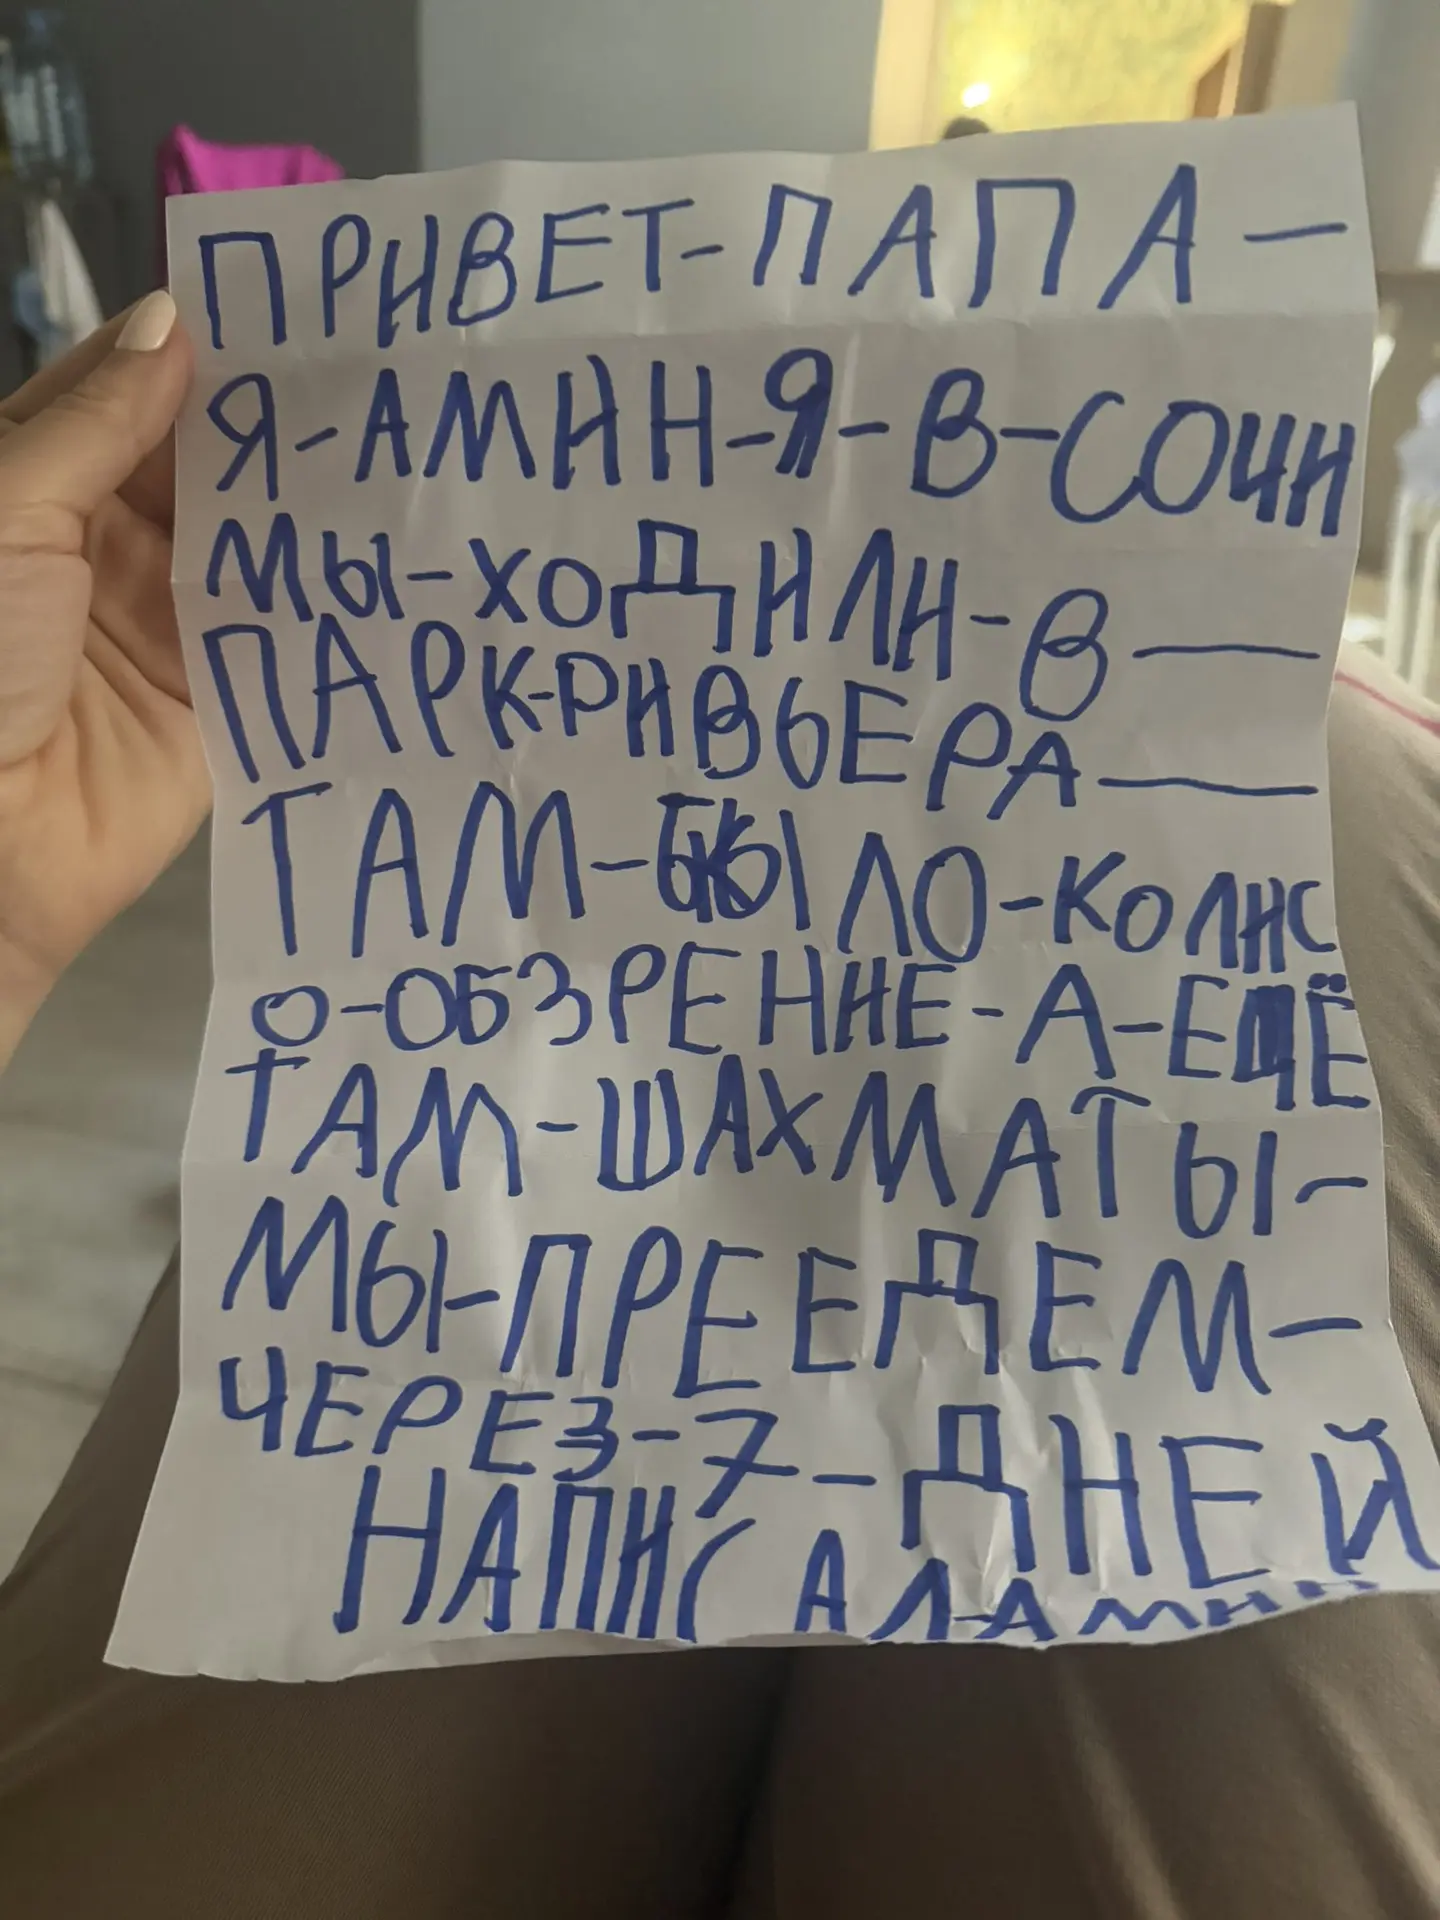 ПРИВЕТ-ПАПА-
Я-АМИН-Я-В-СОЧИ
МЫ-ХОДИЛИ-В-
ПАРК-РИВЬЕРА-
ТАМ-БЫЛО-КОЛИС
О-ОБЗРЕНИЕ-А-ЕЩЁ
ТАМ-ШАХМАТЫ-
МЫ-ПРЕЕДЕМ-
ЧЕРЕЗ-7-ДНЕЙ
НАПИСАЛ-АМИН